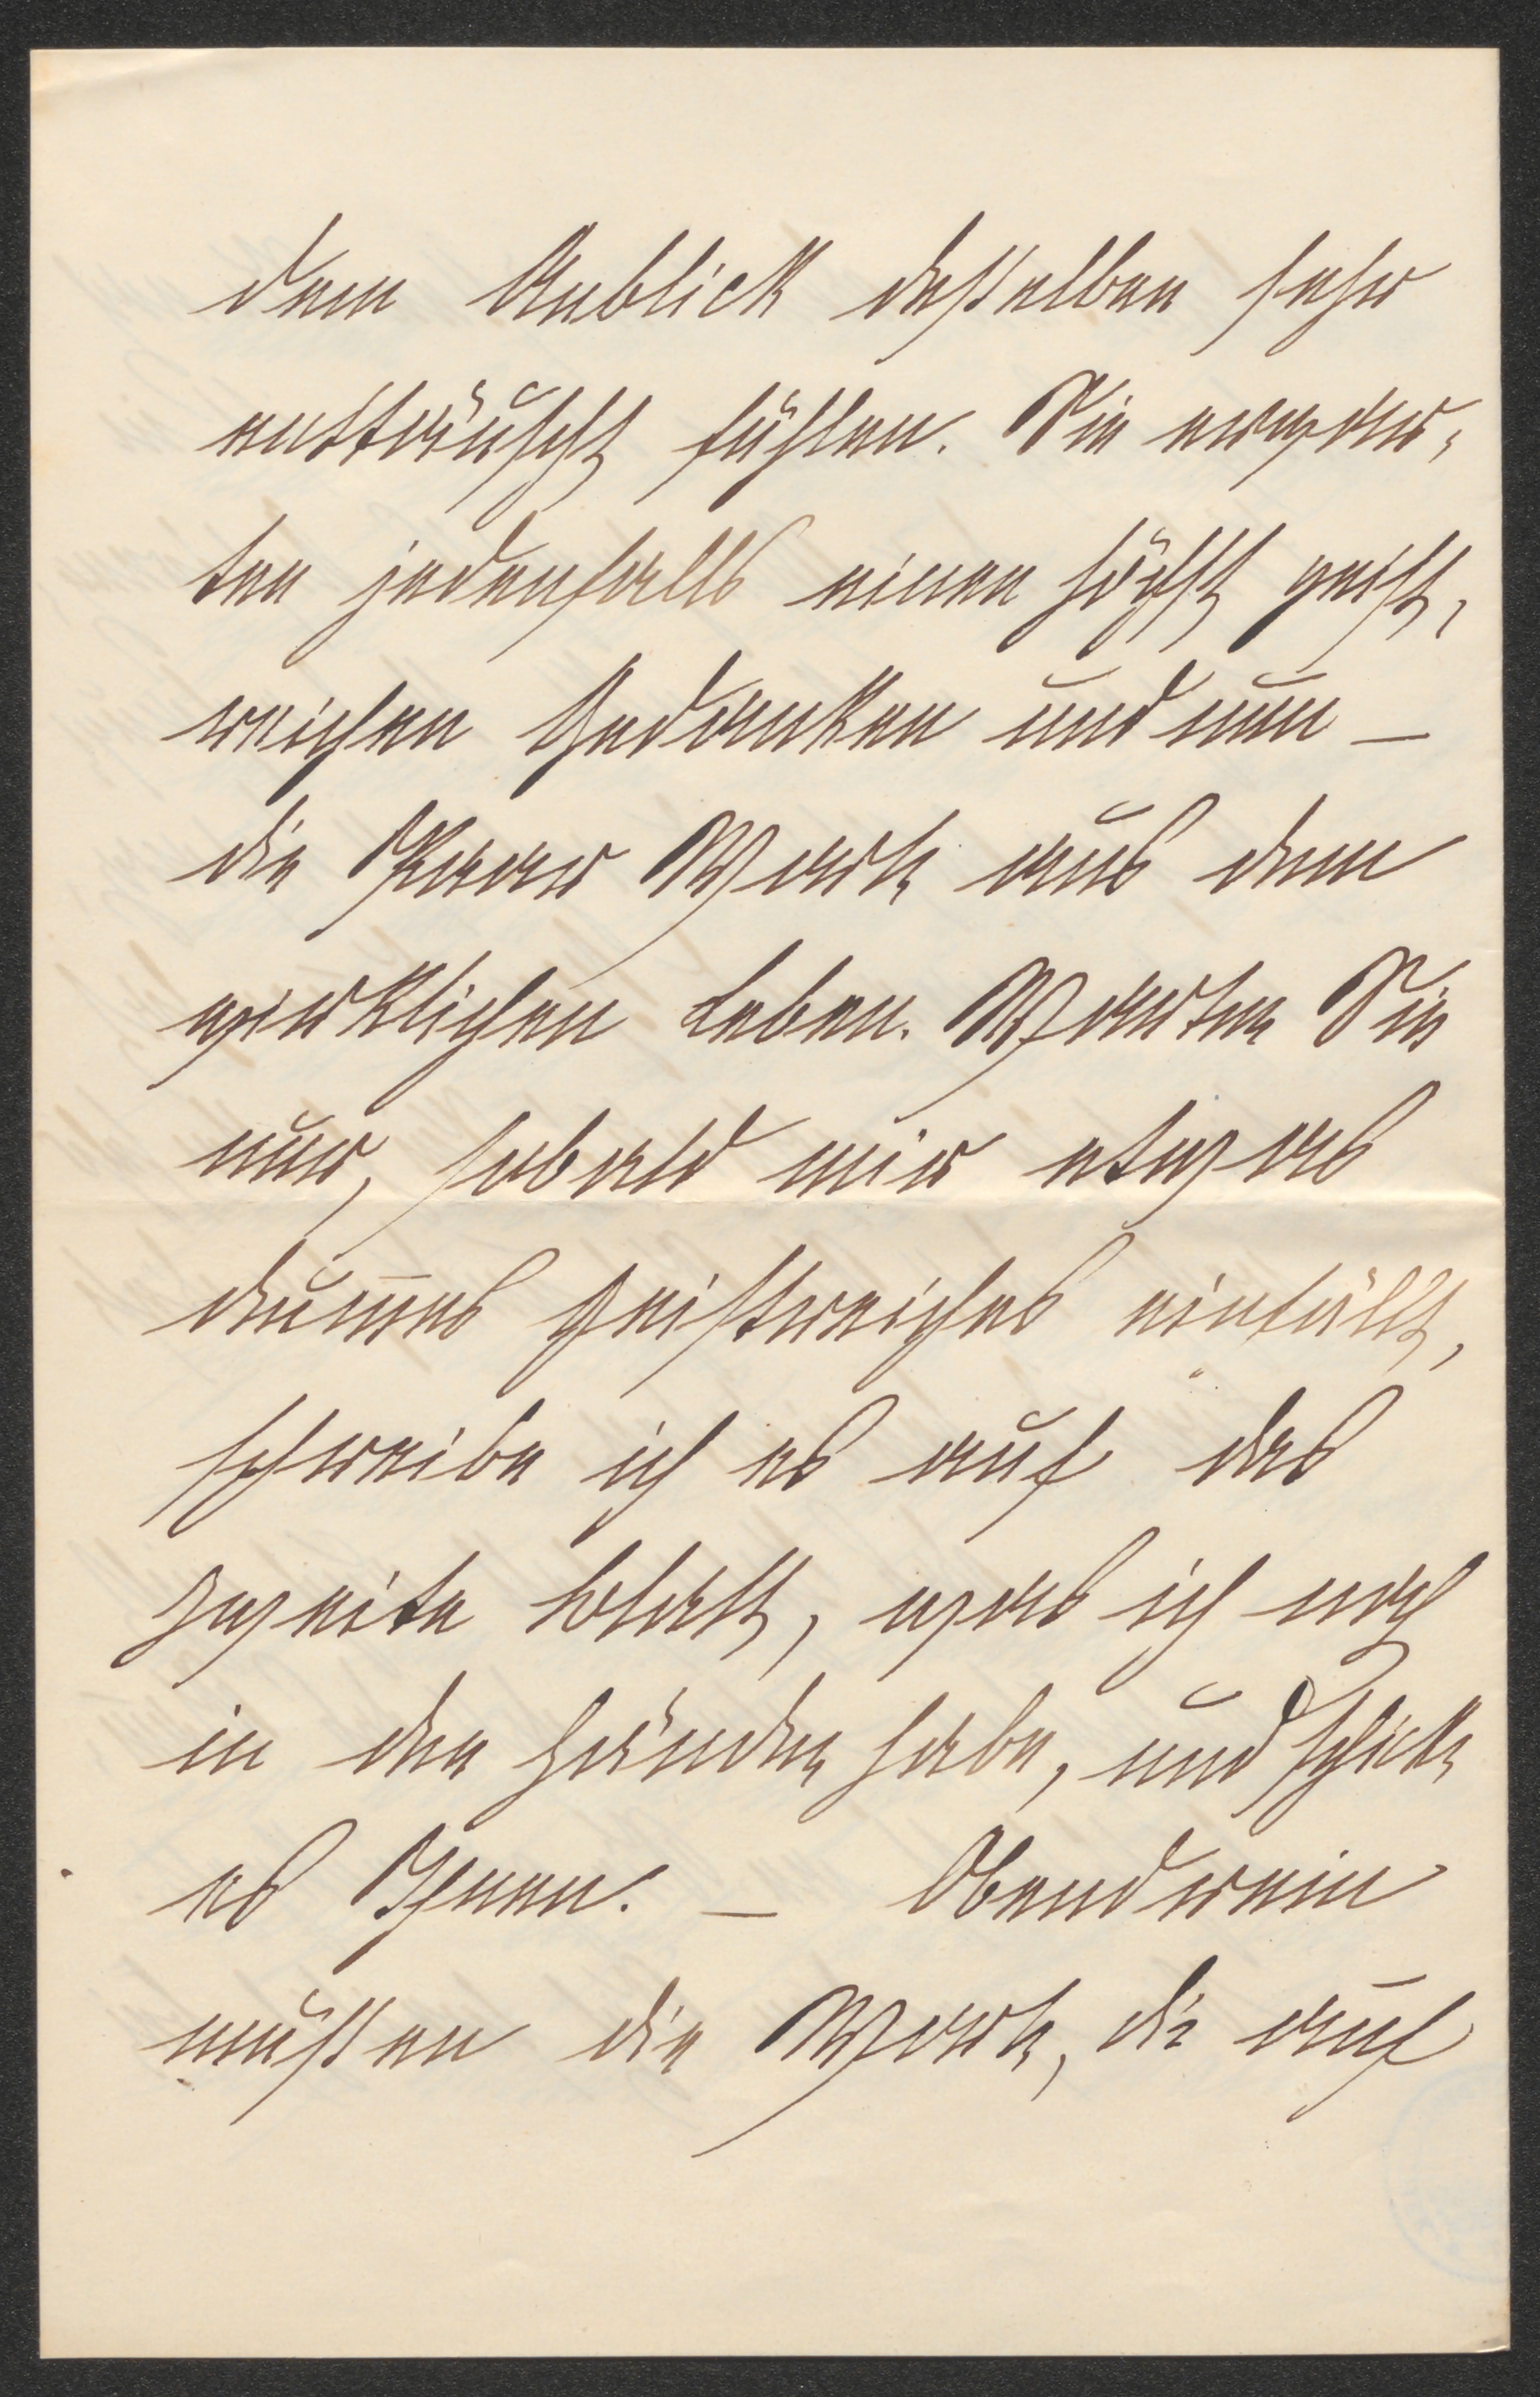 dem Anblick desselben sehr
enttäuscht fühlen. Sie erwar-
ten jedenfalls einen höchst geist-
reichen Gedanken und nun –
die Paar Worte aus dem
wirklichen Leben. Warten Sie
nur, sobald mir etwas
dum̅es geistreiches einfällt,
schreibe ich es auf das
zweite Blatt, was ich noch
in den Händen habe, und schicke
es Ihnen. – Obendrein
müssen die Worte, die auf